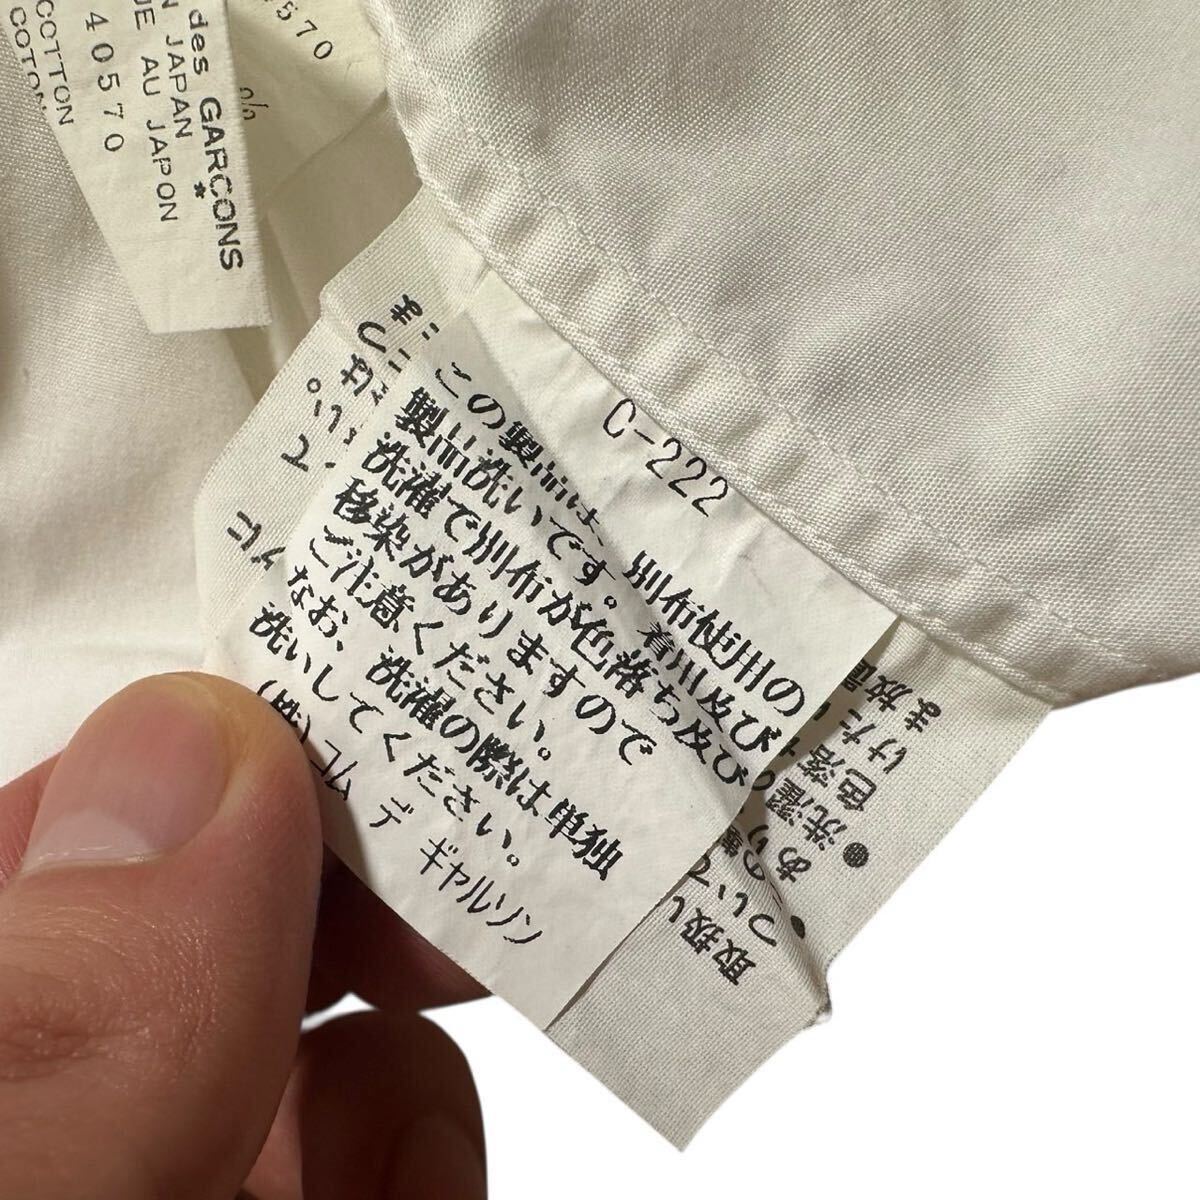 des GARCONS
*
N JAPAN
AU JAPON
40570
COTTON
COTON
570
C-222
この製品は、別布使用の
製品洗いです。着用及び
洗濯で別布が色落ち及び
移染がありますので
ご注意ください。
なお、洗濯の際は単独
洗いしてください。
(株)コム デ ギャルソン
取扱い
ついて
あり
●洗濯
色落
けた
ま放置